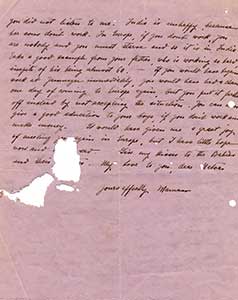 you did not listen to me. India is unhappy because
her sons don't work. In Europe, if you don't work, you
are nobody and you must starve and so it is in India
Take a good example from your father who is working so hard
inspite of his being almost 60. If you would have begun
work at Jamnagar immediately, you would have been able
one day of coming to Europe again. But you put it
off instead by not accepting the situation. You can not
give a good education to your boys if you don't work and
make money. It would have given me a great joy
of meeting you in Europe, but I have little hope
now and. Give my kisses to the Babies
and their. My love to you, dear
yours affectly,